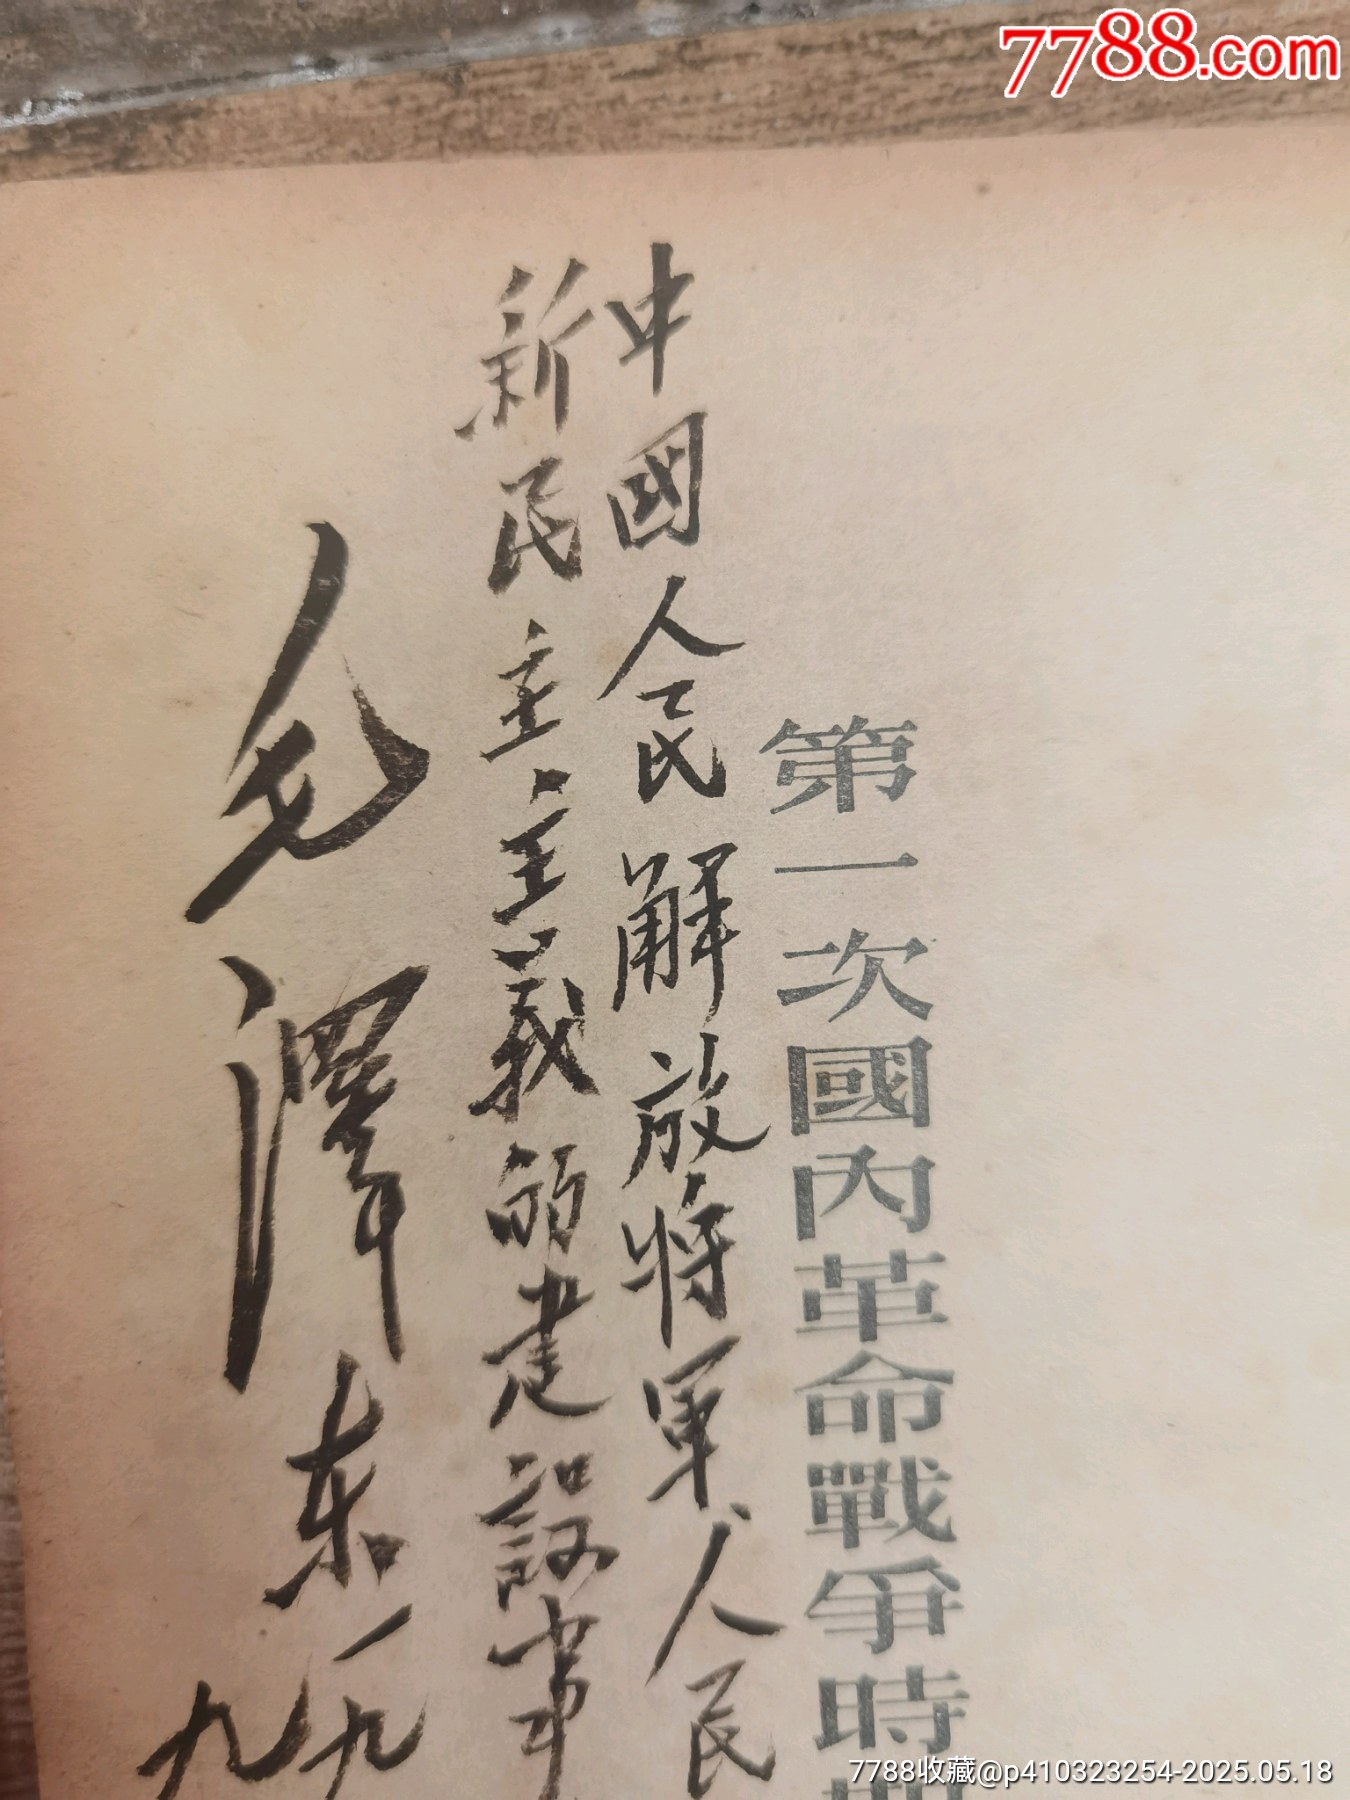 7788.com
第一次國內革命戰爭時期
中國人民解放將軍、人民
新民主主義的建設事
毛澤東 一九
九
7788收藏@p410323254-2025.05.18